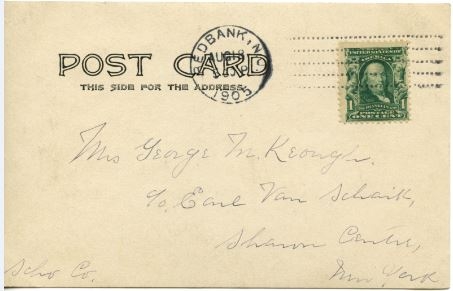 POST CARD
THIS SIDE FOR THE ADDRESS.
REDBANK, N.J.
AUG 18
1905
UNITED STATES OF AMERICA
FRANKLIN
1 ONE CENT 1
Mrs George M. Keough.
c/o Earl Van Schaik,
Sharon Centre,
Scho Co.
New York